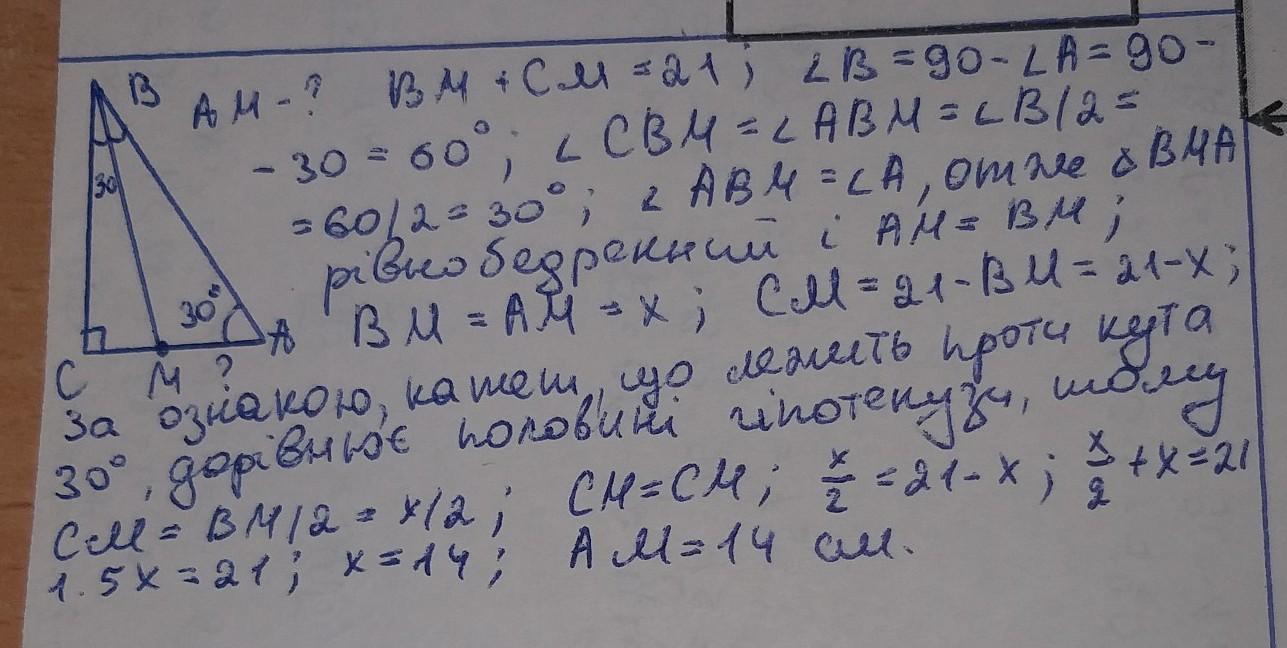 B AM - ? BM + CM = 21; ∠B = 90 - ∠A = 90 -
- 30 = 60°; ∠CBM = ∠ABM = ∠B/2 =
30 = 60/2 = 30°; ∠ABM = ∠A, отже δ BMA
рівнобедренний і AM = BM;
30° A BM = AM = x; CM = 21 - BM = 21 - x;
C M ?
За ознакою, катет, що лежить проти кута
30°, дорівнює половині гіпотенузи, тому
CM = BM/2 = x/2; CM = CM; x/2 = 21 - x; x/2 + x = 21
1.5x = 21; x = 14; AM = 14 см.